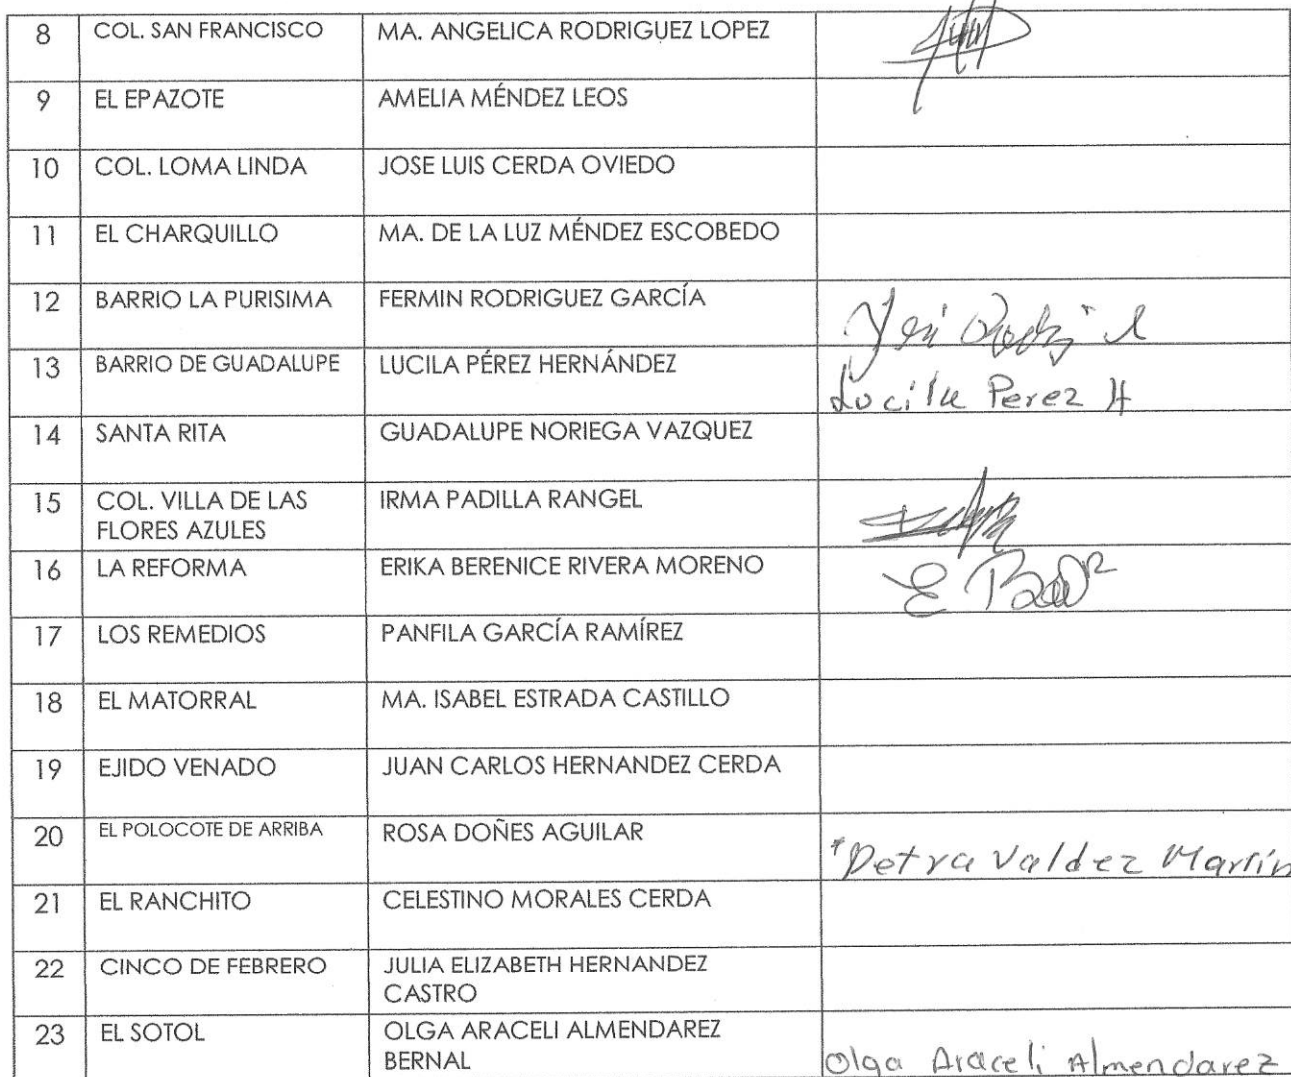 8 COL. SAN FRANCISCO MA. ANGELICA RODRIGUEZ LOPEZ
9 EL EPAZOTE AMELIA MÉNDEZ LEOS
10 COL. LOMA LINDA JOSE LUIS CERDA OVIEDO
11 EL CHARQUILLO MA. DE LA LUZ MÉNDEZ ESCOBEDO
12 BARRIO LA PURISIMA FERMIN RODRIGUEZ GARCÍA
13 BARRIO DE GUADALUPE LUCILA PÉREZ HERNÁNDEZ
Lucila Perez H
14 SANTA RITA GUADALUPE NORIEGA VAZQUEZ
15 COL. VILLA DE LAS IRMA PADILLA RANGEL
FLORES AZULES
16 LA REFORMA ERIKA BERENICE RIVERA MORENO
17 LOS REMEDIOS PANFILA GARCÍA RAMÍREZ
18 EL MATORRAL MA. ISABEL ESTRADA CASTILLO
19 EJIDO VENADO JUAN CARLOS HERNANDEZ CERDA
20 EL POLOCOTE DE ARRIBA ROSA DOÑES AGUILAR
Petra Valdez Martín
21 EL RANCHITO CELESTINO MORALES CERDA
22 CINCO DE FEBRERO JULIA ELIZABETH HERNANDEZ
CASTRO
23 EL SOTOL OLGA ARACELI ALMENDAREZ
BERNAL
Olga Araceli Almendarez